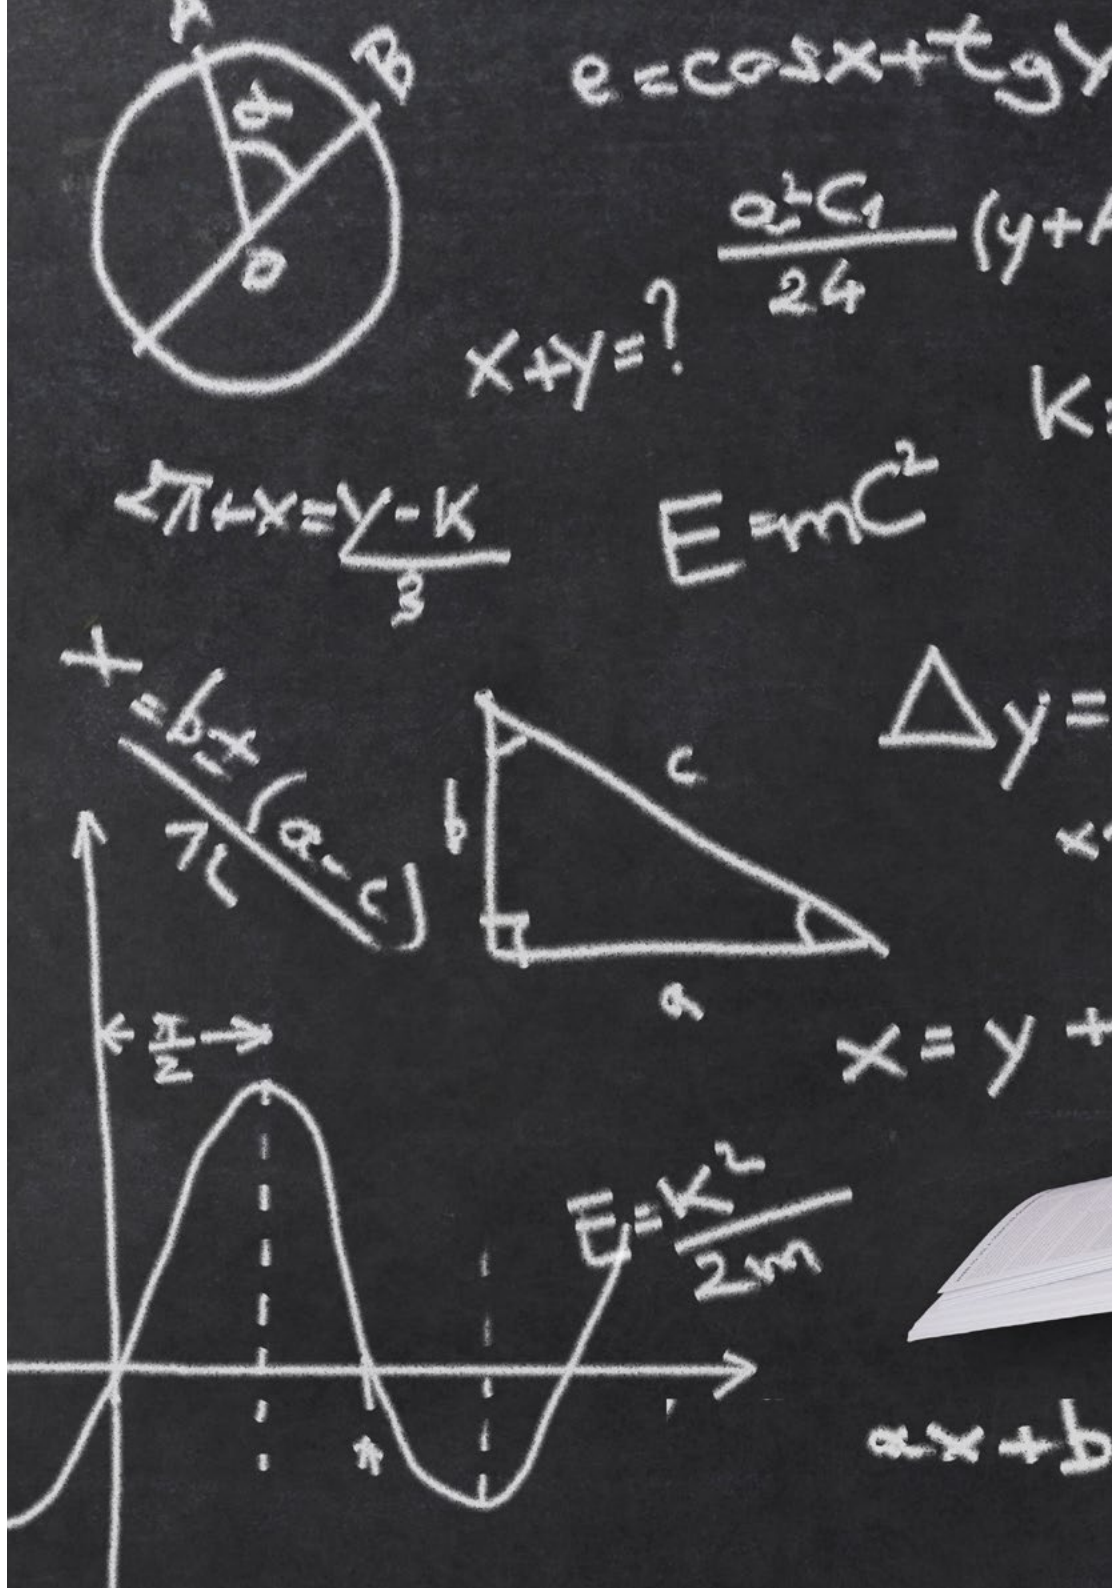 A
B
α
O
e=cosx+tgy
a²C₁/24 (y+A
x+y=?
K=
2π+x=y-K/3
E=mC²
x=b±(a-c)/π
Δy=
b
c
a
π/2
x=y+
E=K²/2m
π
ax+b